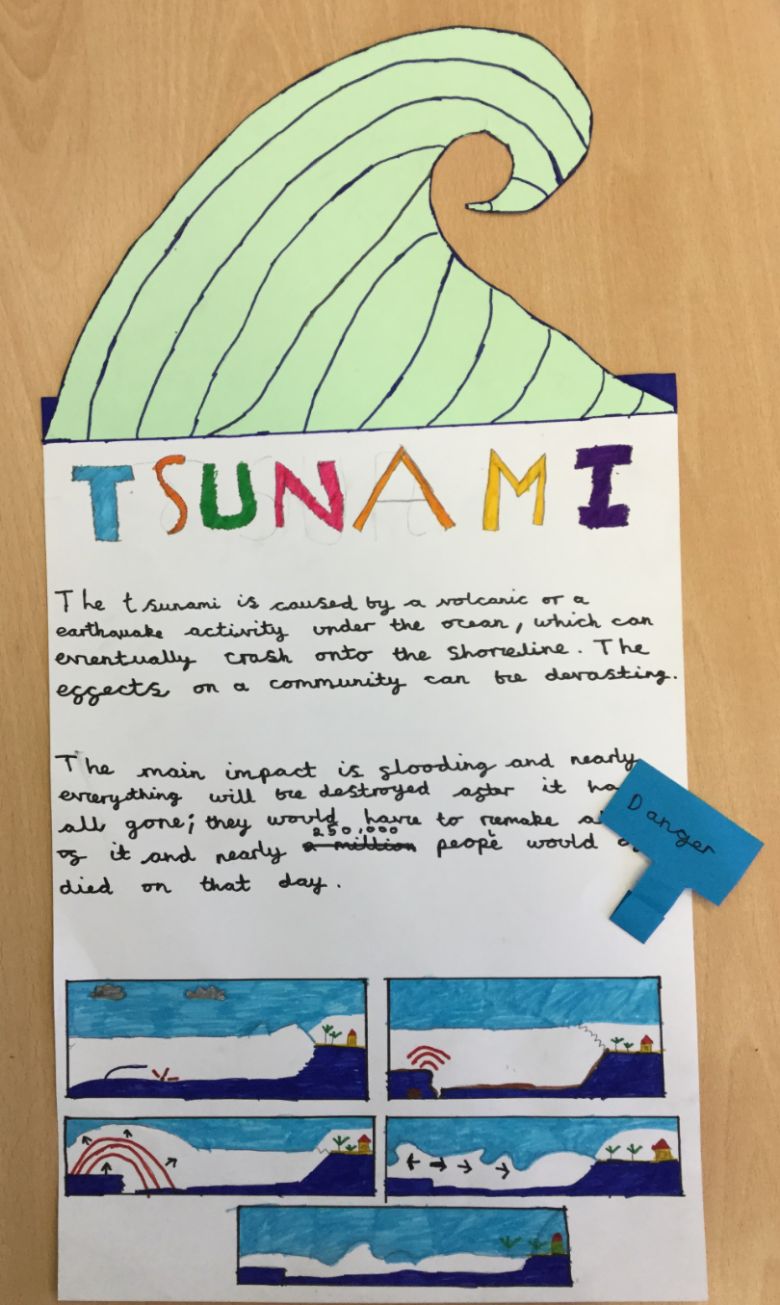 TSUNAMI
The tsunami is caused by a volcanic or a
earthquake activity under the ocean, which can
eventually crash onto the shoreline. The
effects on a community can be devasting.
The main impact is flooding and nearly
everything will be destroyed after it
all gone; they would have to remake
250,000
of it and nearly a million people would
died on that day.
Danger